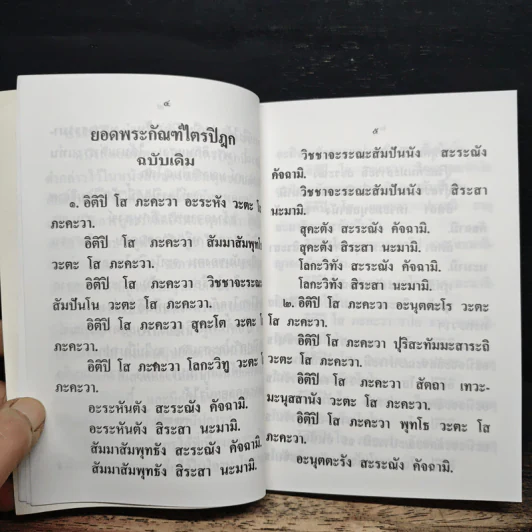 ๔
ยอดพระกัณฑ์ไตรปิฎก
ฉบับเดิม
๑. อิติปิ โส ภะคะวา อะระหัง วะตะ โส
ภะคะวา.
อิติปิ โส ภะคะวา สัมมาสัมพุทโธ
วะตะ โส ภะคะวา.
อิติปิ โส ภะคะวา วิชชาจะระณะ
สัมปันโน วะตะ โส ภะคะวา.
อิติปิ โส ภะคะวา สุคะโต วะตะ โส
ภะคะวา.
อิติปิ โส ภะคะวา โลกะวิทู วะตะ โส
ภะคะวา.
อะระหันตัง สะระณัง คัจฉามิ.
อะระหันตัง สิระสา นะมามิ.
สัมมาสัมพุทธัง สะระณัง คัจฉามิ.
สัมมาสัมพุทธัง สิระสา นะมามิ.
๕
วิชชาจะระณะสัมปันนัง สะระณัง
คัจฉามิ.
วิชชาจะระณะสัมปันนัง สิระสา
นะมามิ.
สุคะตัง สะระณัง คัจฉามิ.
สุคะตัง สิระสา นะมามิ.
โลกะวิทัง สะระณัง คัจฉามิ.
โลกะวิทัง สิระสา นะมามิ.
๒. อิติปิ โส ภะคะวา อะนุตตะโร วะตะ
โส ภะคะวา.
อิติปิ โส ภะคะวา ปุริสะทัมมะสาระถิ
วะตะ โส ภะคะวา.
อิติปิ โส ภะคะวา สัตถา เทวะ-
มะนุสสานัง วะตะ โส ภะคะวา.
อิติปิ โส ภะคะวา พุทโธ วะตะ โส
ภะคะวา.
อะนุตตะรัง สะระณัง คัจฉามิ.